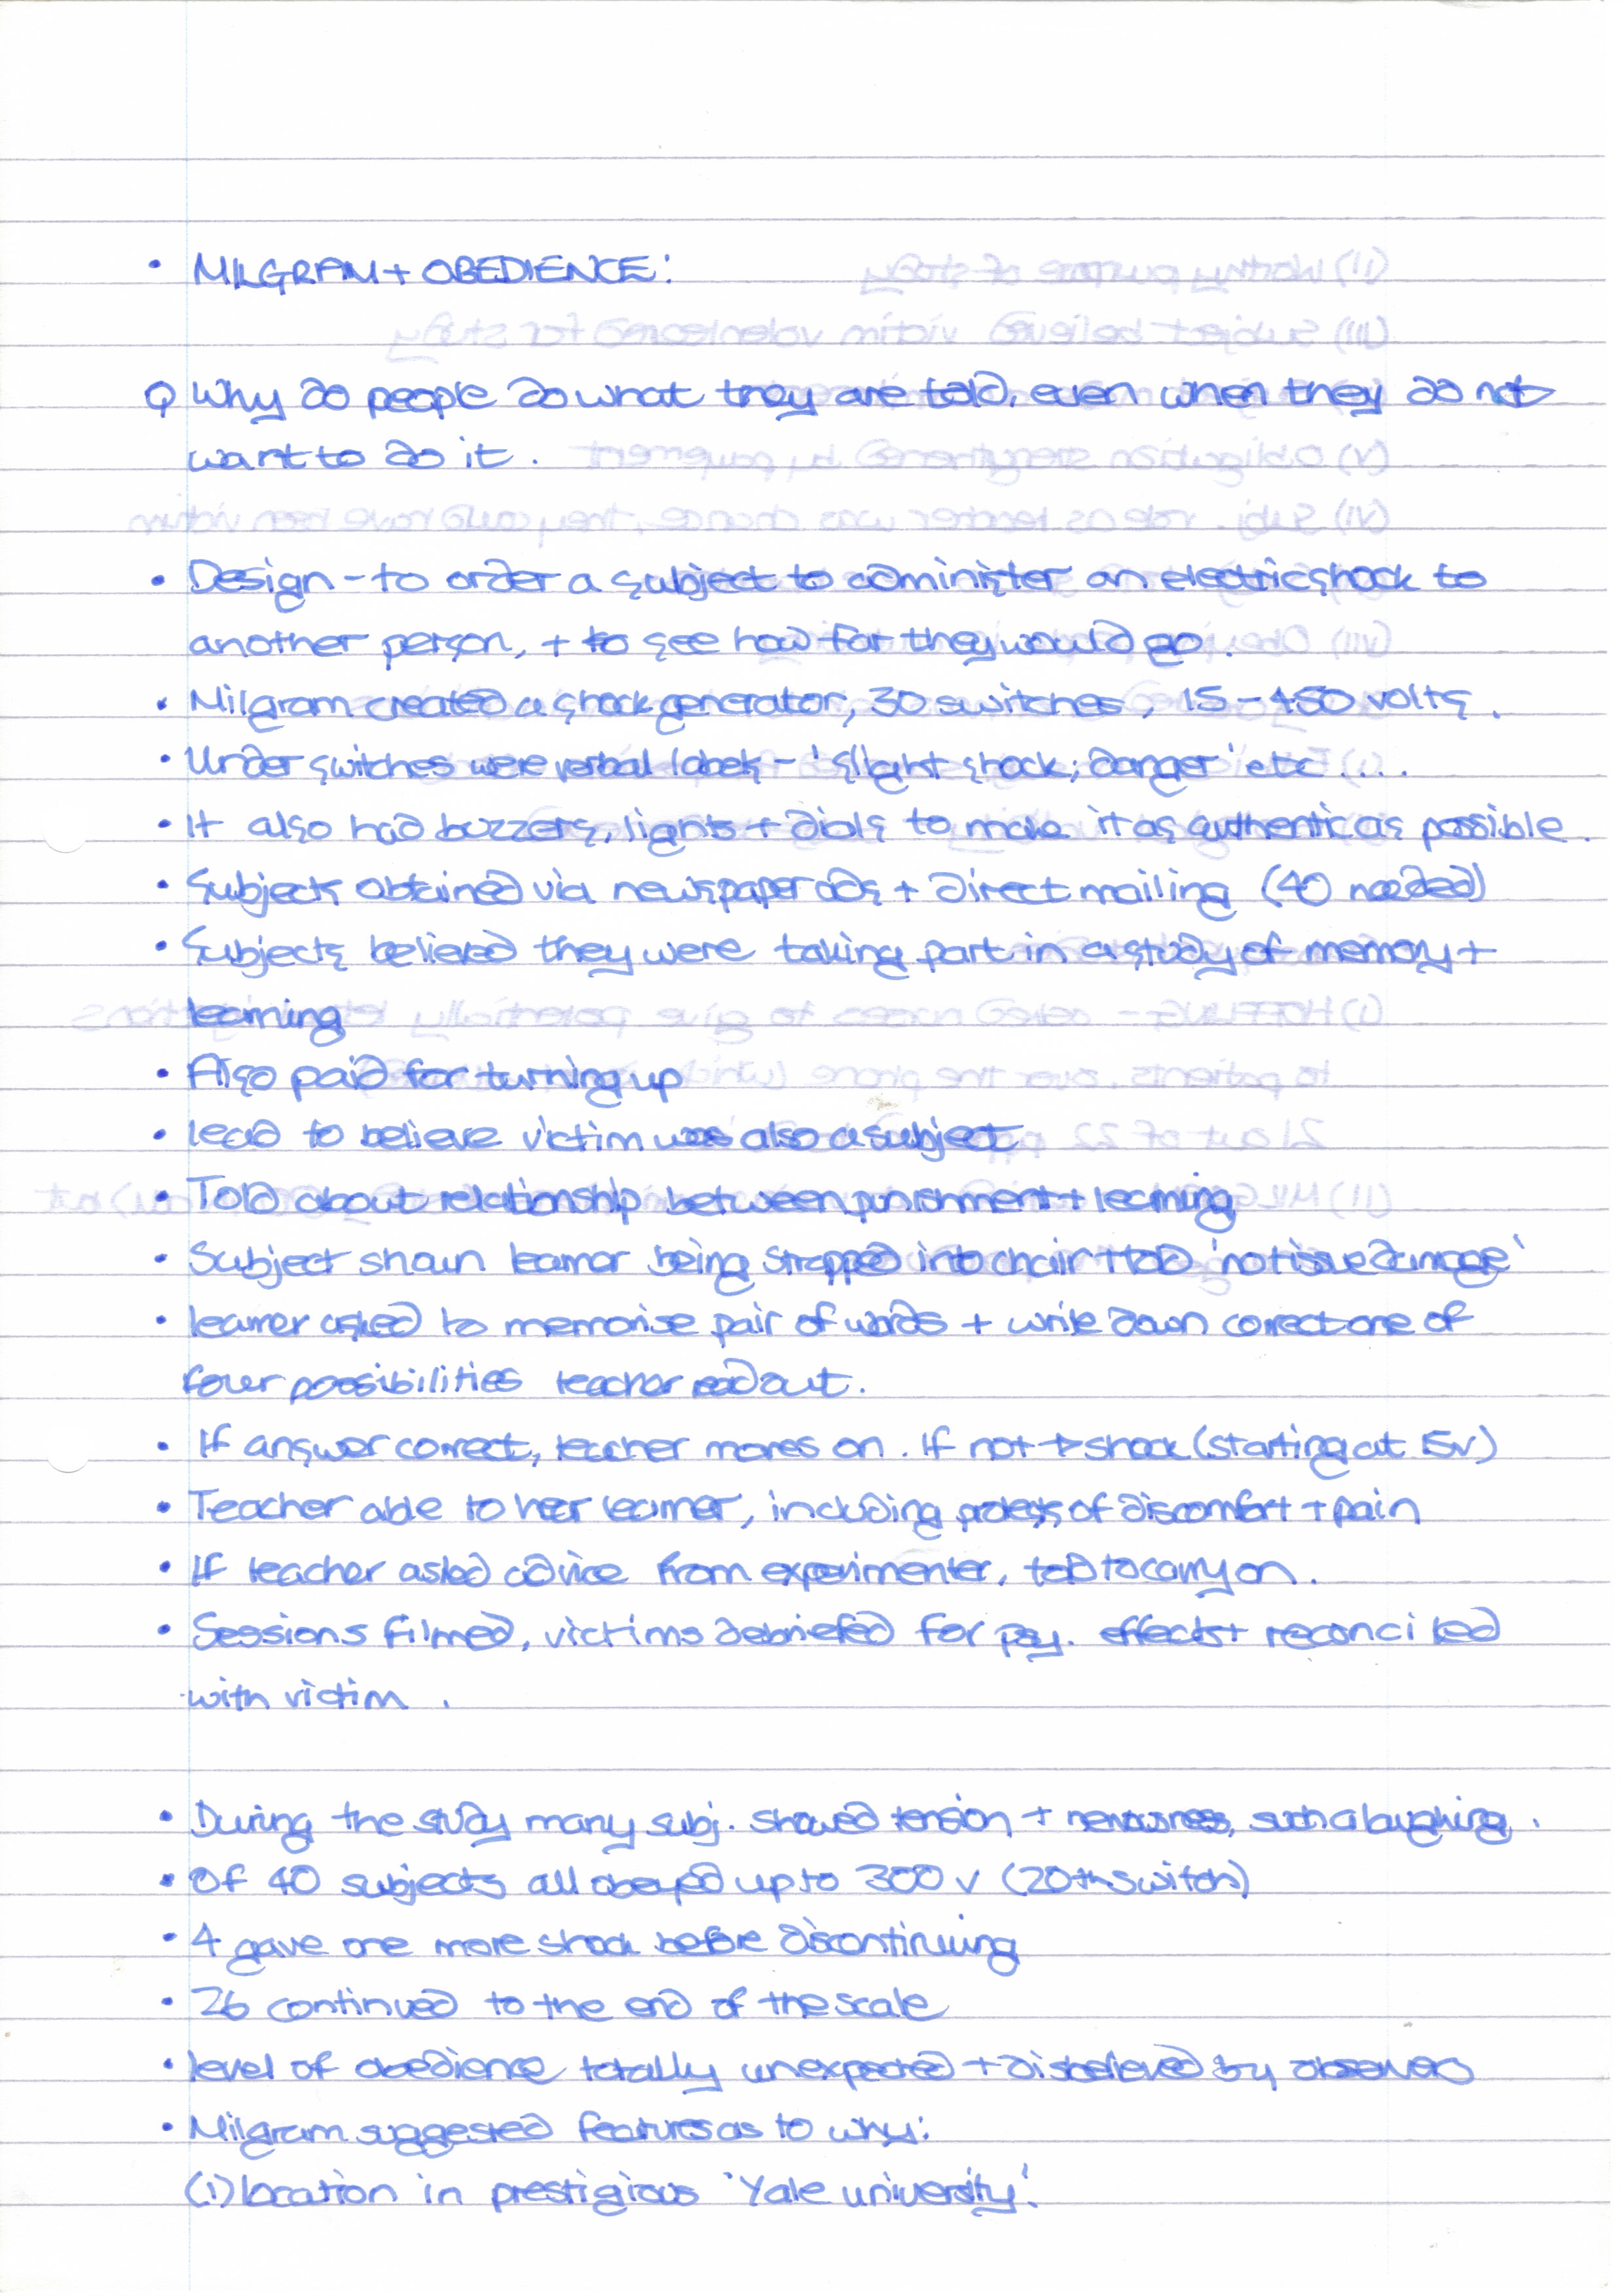 • MILGRAM + OBEDIENCE:
Q Why do people do what they are told, even when they do not
want to do it.
• Design - to order a subject to administer an electric shock to
another person, + to see how far they would go.
• Milgram created a shock generator, 30 switches, 15 - 450 volts.
• Under switches were verbal labels - 'slight shock; danger' etc....
• It also had buzzers, lights + dials to make it as authentic as possible.
• Subjects obtained via newspaper ads + direct mailing (40 needed)
• Subjects believed they were taking part in a study of memory +
learning
• Also paid for turning up
• lead to believe victim was also a subject
• Told about relationship between punishment + learning
• Subject shown learner being strapped into chair + told 'no tissue damage'
• learner asked to memorise pair of words + write down correct one of
four possibilities teacher read out.
• If answer correct, teacher moves on. If not → shock (starting at 15v)
• Teacher able to hear learner, including protests of discomfort + pain
• If teacher asked advice from experimenter, told to carry on.
• Sessions filmed, victims debriefed for psy. effects + reconciled
with victim.
• During the study many subj. showed tension + nervousness, such a laughing.
• Of 40 subjects all obeyed up to 300 v (20th switch)
• 4 gave one more shock before discontinuing
• 26 continued to the end of the scale
• level of obedience totally unexpected + disbelieved by observers
• Milgram suggested features as to why:
(i) location in prestigious 'Yale university'.